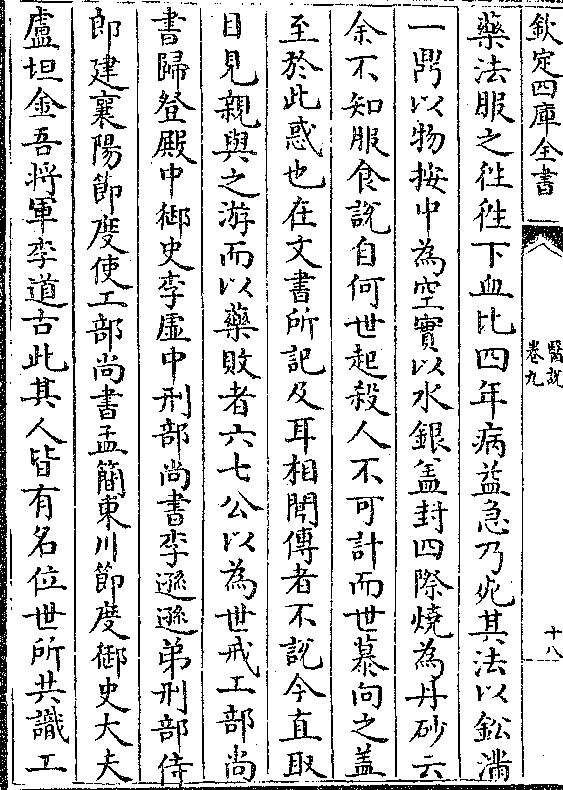 欽定四庫全書
醫說
卷九
十八
藥法服之徃徃下血比四年病益急乃死其法以鈆滿
一鼎以物按中為空實以水銀盖封四際燒為丹砂云
余不知服食說自何世起殺人不可計而世慕向之盖
至於此惑也在文書所記及耳相聞傳者不說今直取
目見親與之游而以藥敗者六七公以為世戒工部尚
書歸登殿中御史李虛中刑部尚書李遜遜弟刑部侍
郎建襄陽節度使工部尚書孟簡東川節度御史大夫
盧坦金吾將軍李道古此其人皆有名位世所共識工